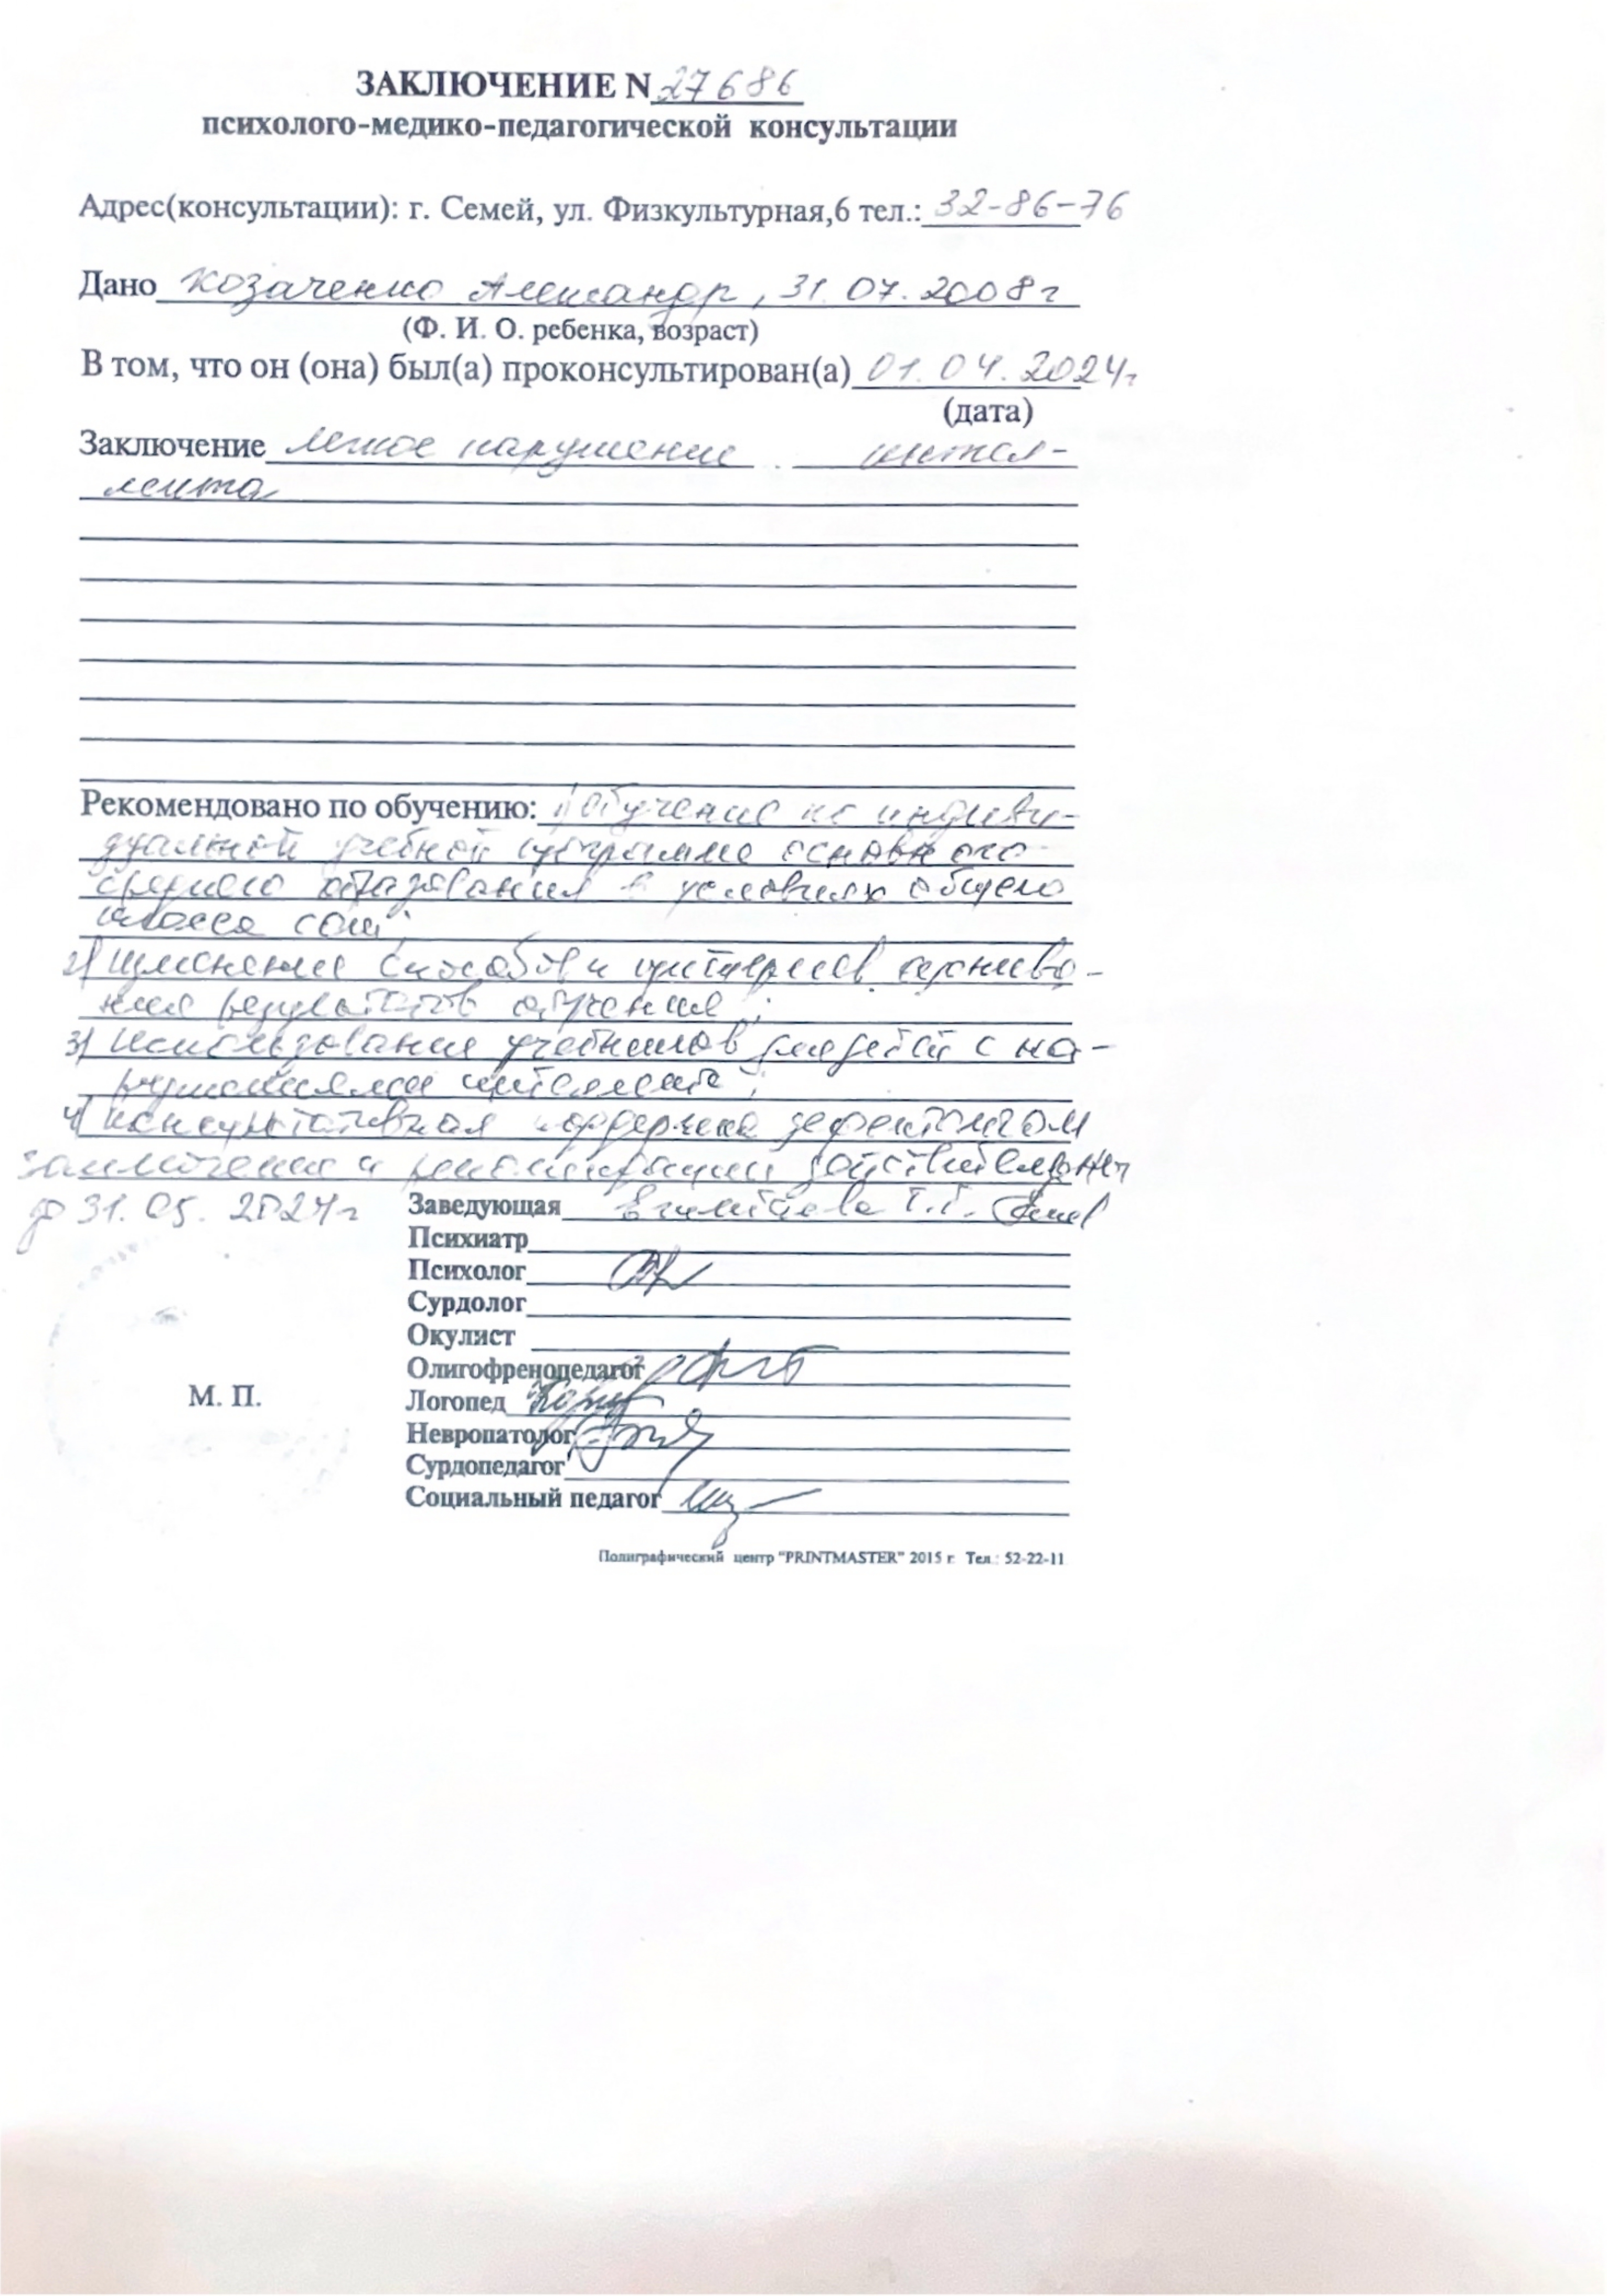 ЗАКЛЮЧЕНИЕ N 27686
психолого-медико-педагогической консультации
Адрес(консультации): г. Семей, ул. Физкультурная,6 тел.: 32-86-76
Дано Козаченко Александр, 31.07.2008г
(Ф. И. О. ребенка, возраст)
В том, что он (она) был(а) проконсультирован(а) 01.04.2024г
(дата)
Заключение легкое нарушение интел-
лекта
Рекомендовано по обучению: 1) обучение по индиви-
дуальной учебной программе основного
среднего образования в условиях общего
класса сош;
2) Изменение способов и критериев оценива-
ния результатов обучения;
3) Использование учебников для детей с на-
рушениями интеллекта;
4) консультативная поддержка дефектологом
заключение и рекомендации действительны
до 31.05.2024г
Заведующая Т.Г.
Психиатр
Психолог
Сурдолог
Окулист
Олигофренопедагог
Логопед
М. П.
Невропатолог
Сурдопедагог
Социальный педагог
Полиграфический центр "PRINTMASTER" 2015 г. Тел.: 52-22-11